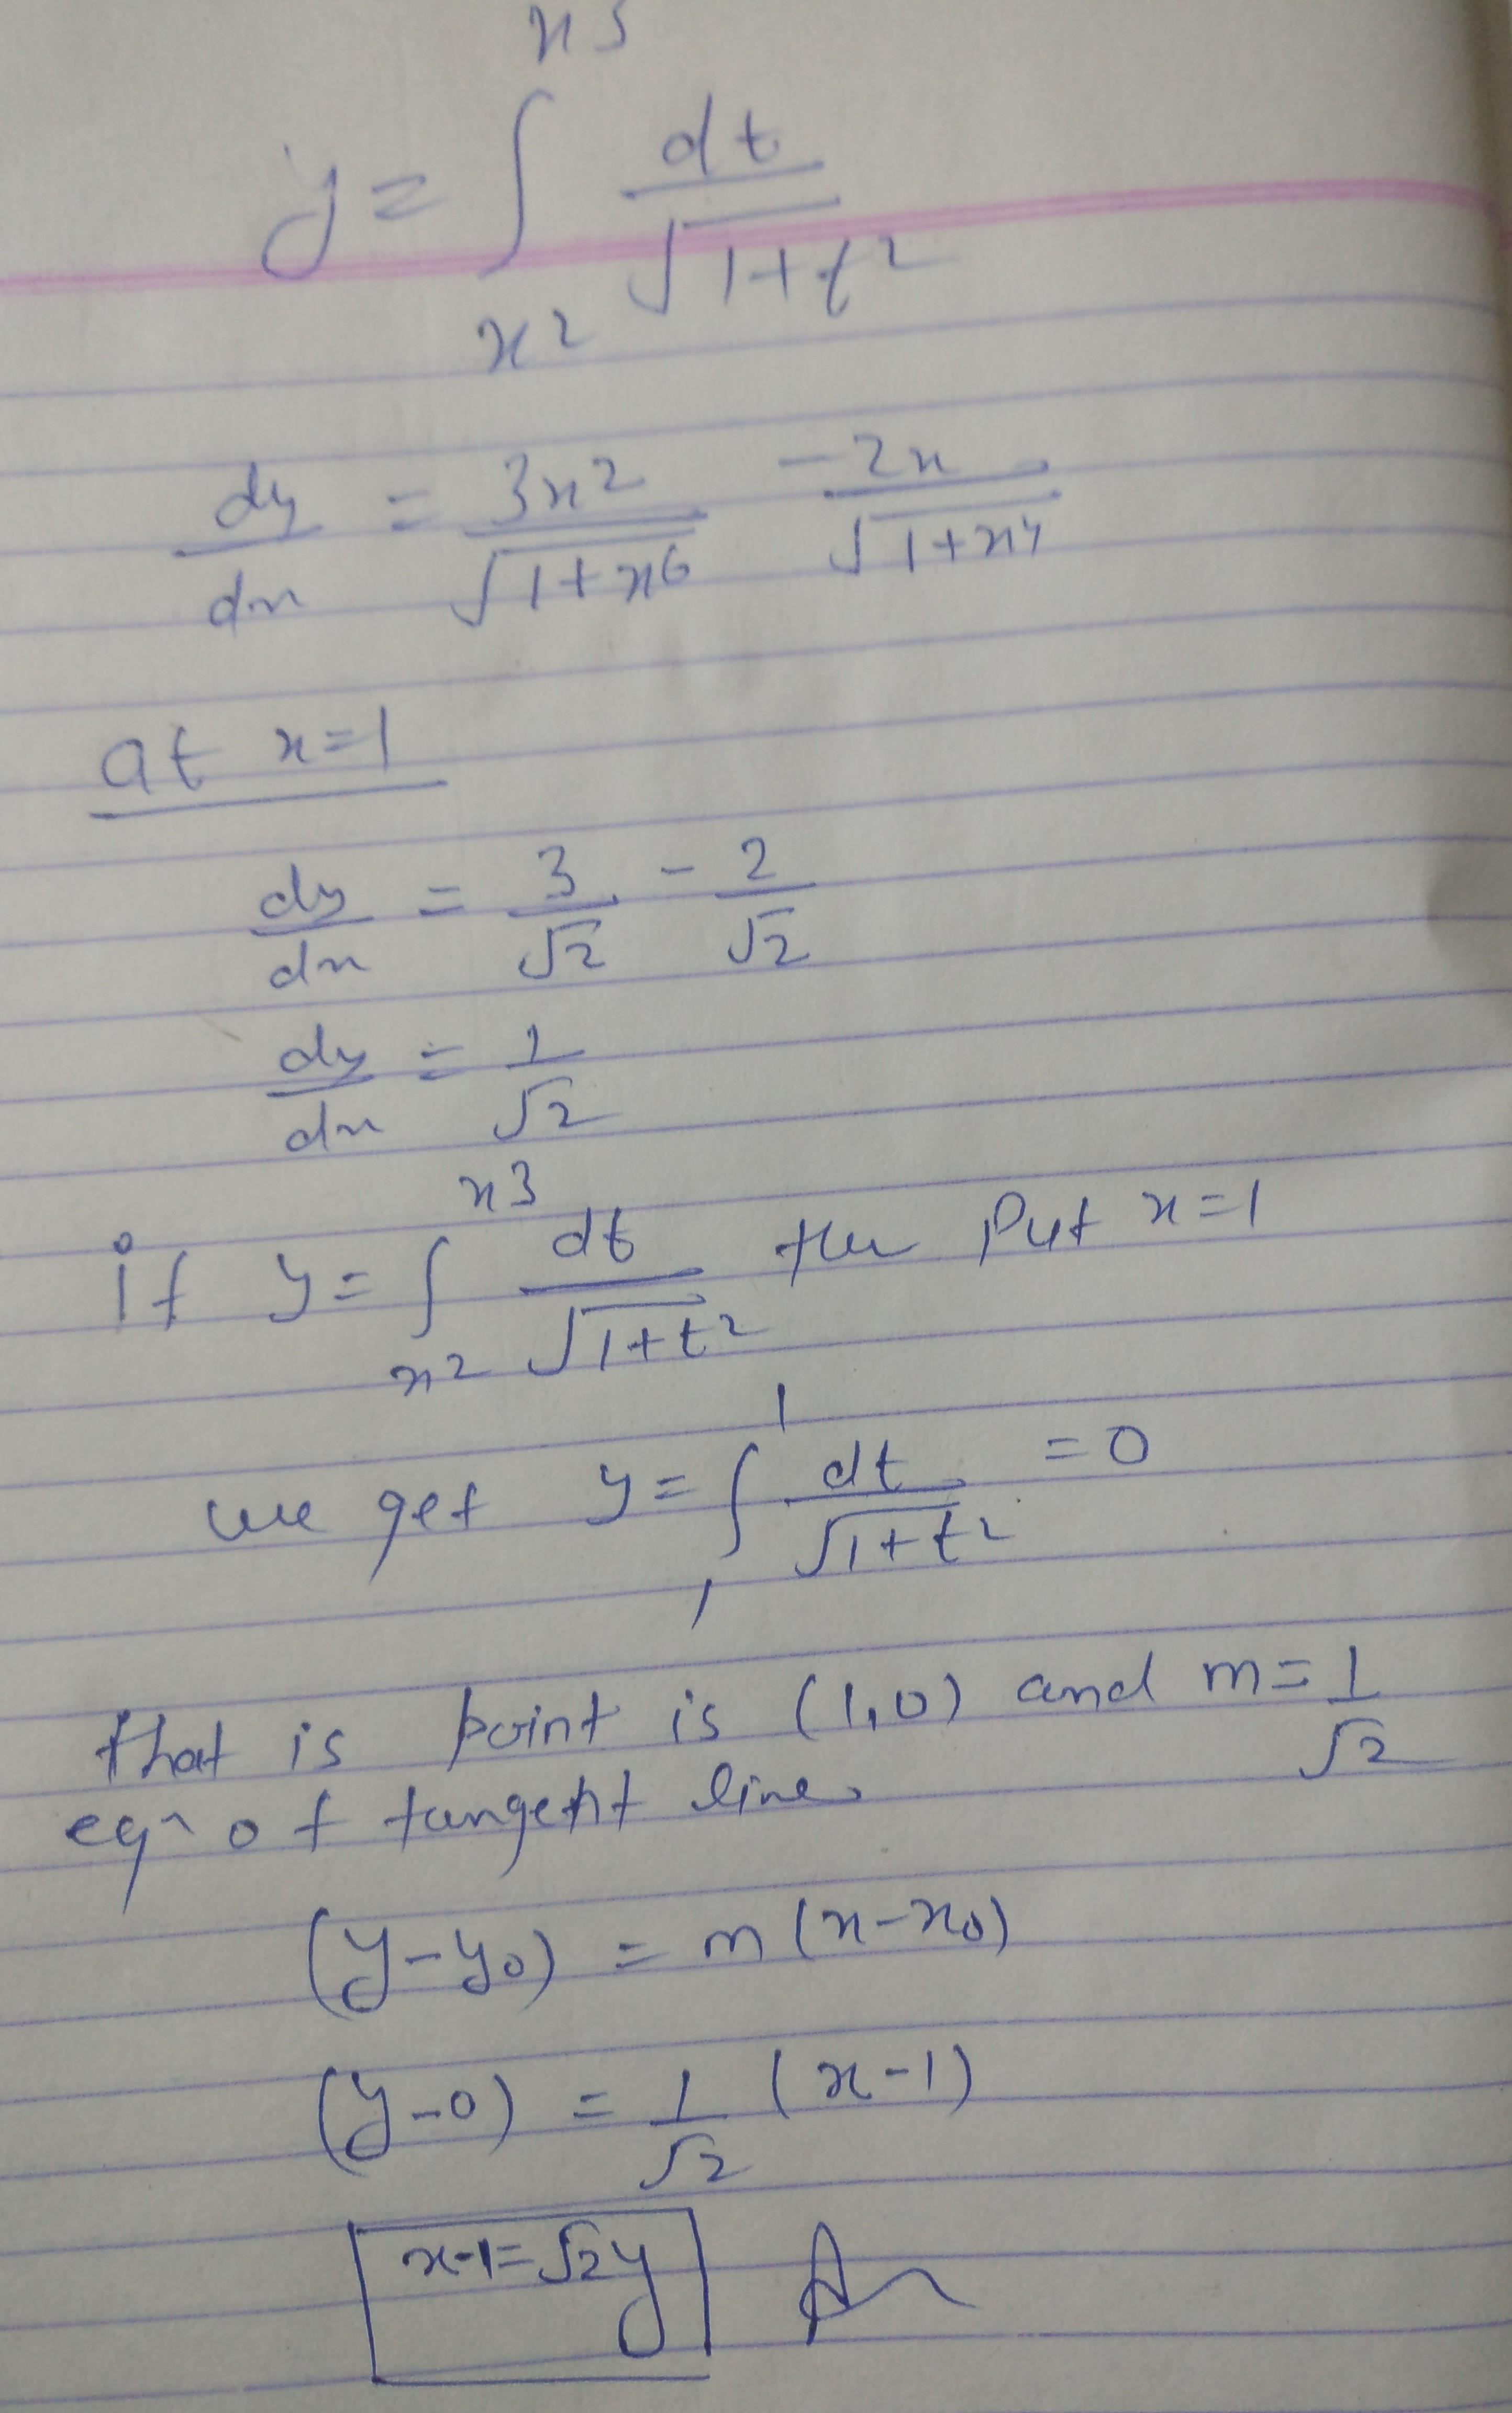 y = ∫_{x²}^{x³} dt/√(1+t²)
dy/dx = 3x²/√(1+x⁶) - 2x/√(1+x⁴)
at x=1
dy/dx = 3/√2 - 2/√2
dy/dx = 1/√2
if y = ∫_{x²}^{x³} dt/√(1+t²) then Put x=1
we get y = ∫_{1}^{1} dt/√(1+t²) = 0
that is point is (1,0) and m = 1/√2
eqn of tangent line.
(y-y₀) = m(x-x₀)
(y-0) = 1/√2 (x-1)
x-1=√2y Ans